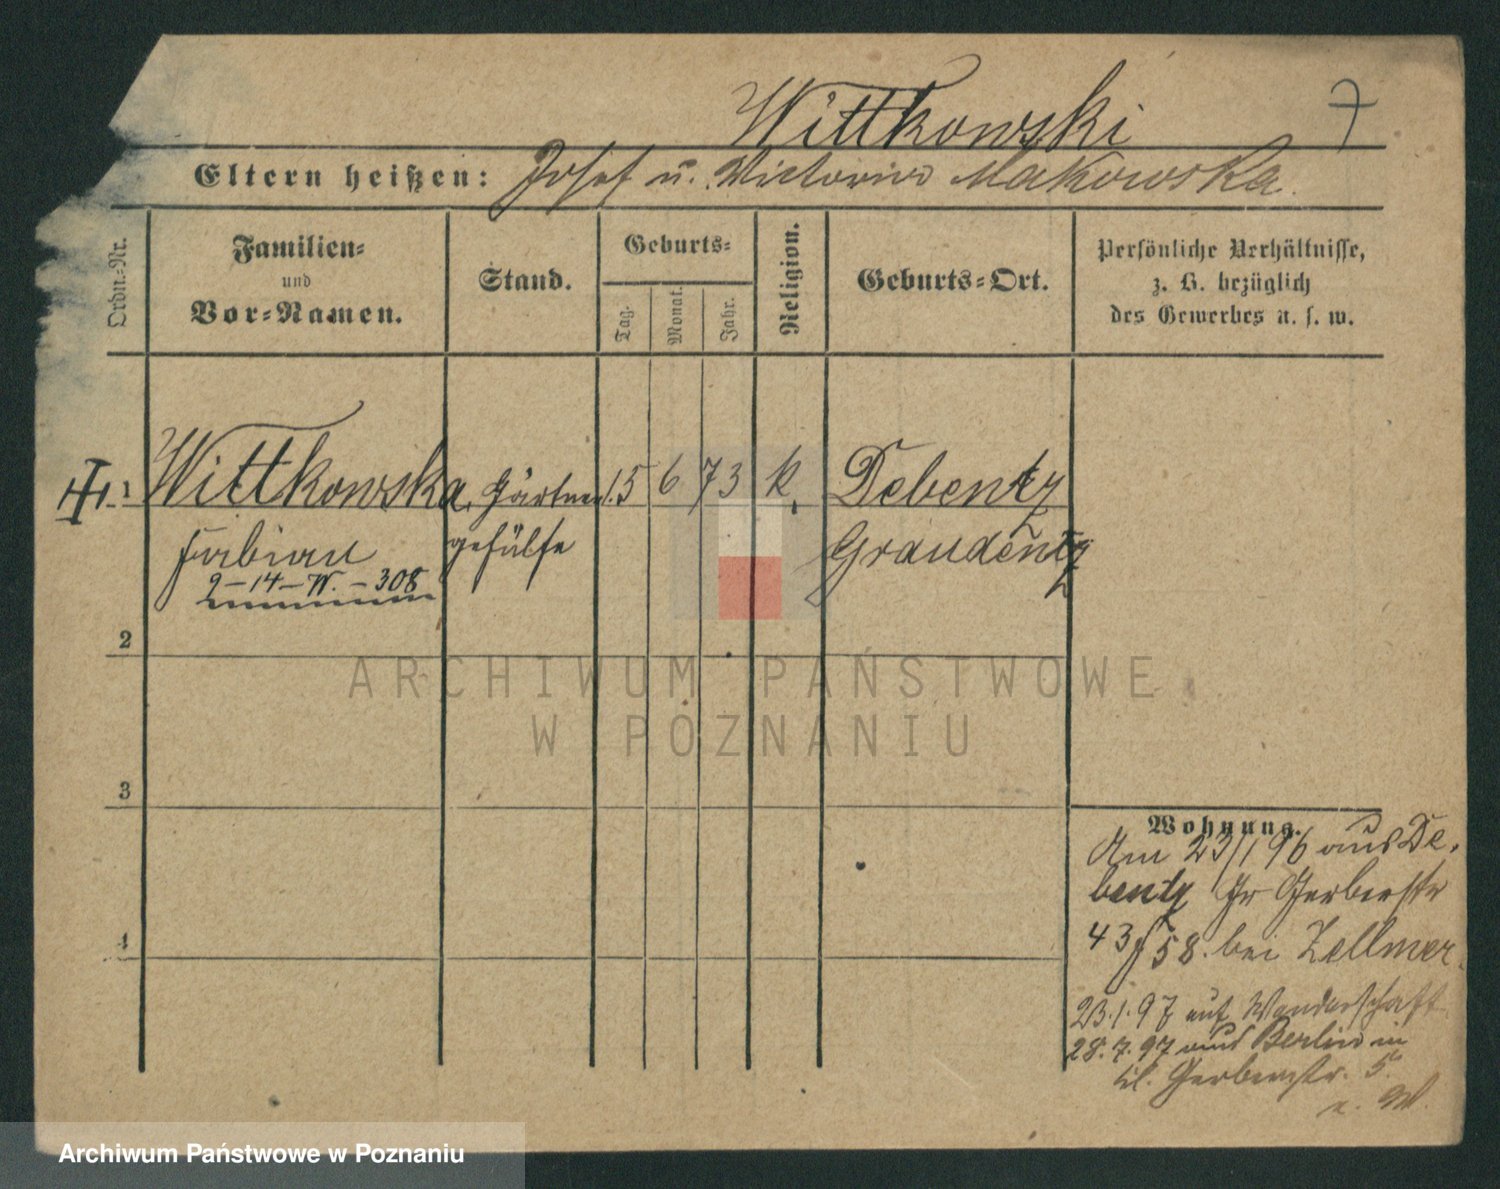 Wittkowski 7
Eltern heißen: Josef u. Victoria Makowska.
Ordn.-Nr.
Familien-
und
Vor-Namen.
Stand.
Geburts-
Tag.
Monat.
Jahr.
Religion.
Geburts-Ort.
Persönliche Verhältnisse,
z. B. bezüglich
des Gewerbes u. s. w.
1 Wittkowska, Gärtner 15 6 73 k. Debentz
Fabian gehülfe Graudentz
2-14-W.-308
2
3
4
ARCHIWUM PAŃSTWOWE
W POZNANIU
Wohnung.
Am 23/1 96 aus De-
bentz Gr Gerberstr
43 58. bei Zellmer.
23.1.97 auf Wanderschaft
28.7.97 aus Berlin in
kl. Gerberstr. 5.
W.
Archiwum Państwowe w Poznaniu